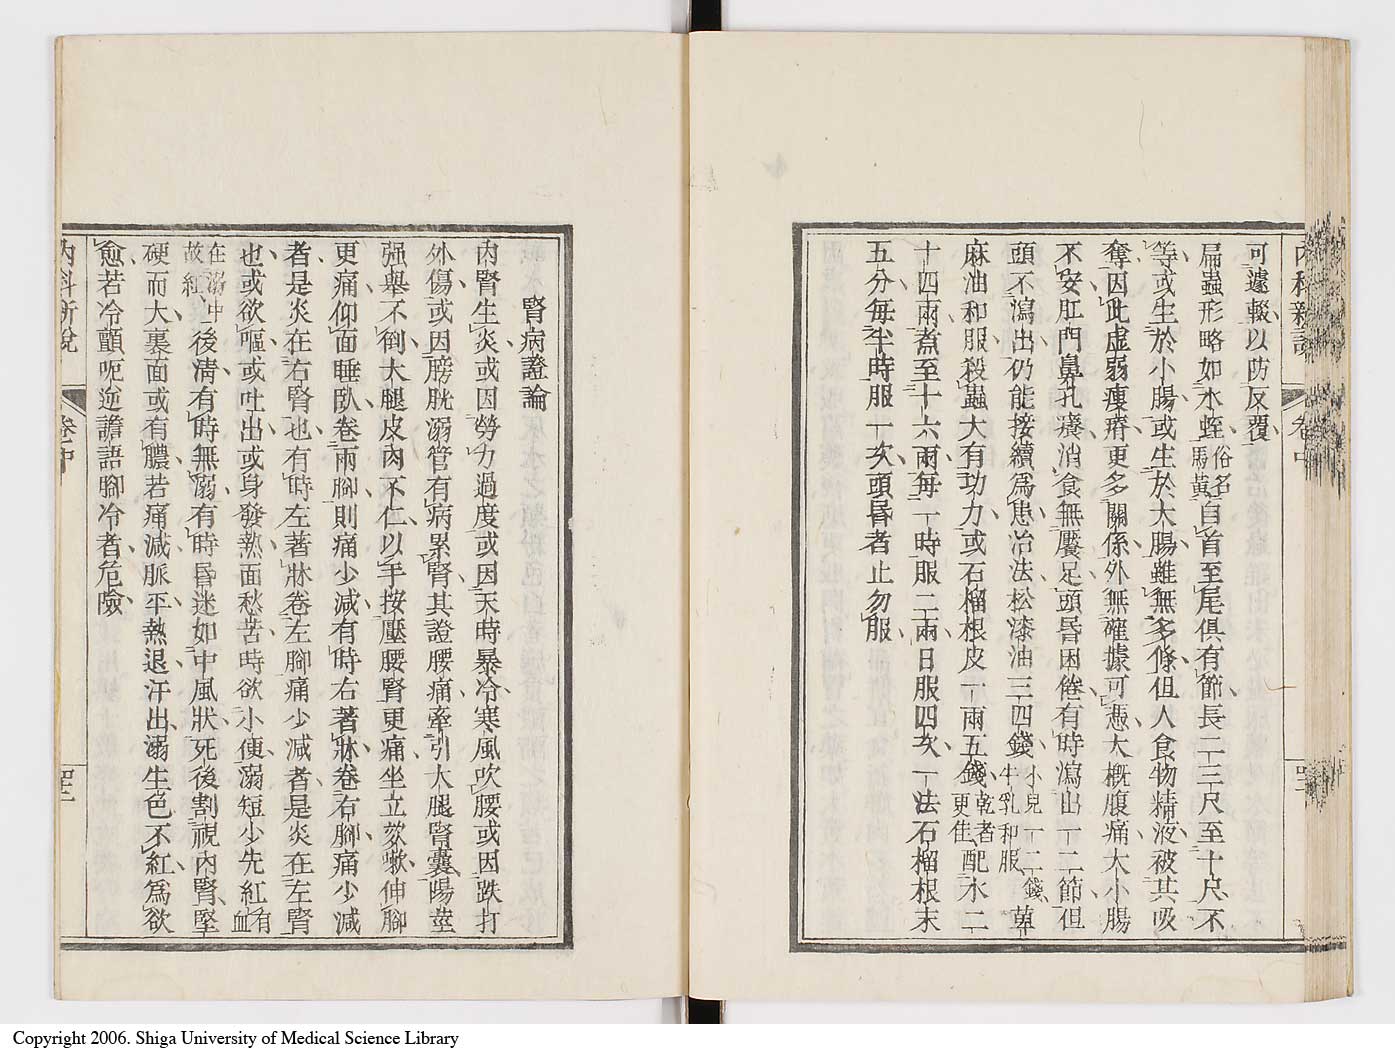 可遽輟以防反覆
扁蟲形略如水蛭俗名馬黃自首至尾俱有節長二三尺至十尺不
等或生於小腸或生於大腸雖無多條但人食物精液被其吸
奪因此虛弱瘦瘠更多關係外無確據可憑大概腹痛大小腸
不安肛門鼻孔癢消食無饜足頭昏困倦有時瀉出一二節但
頭不瀉出仍能接續爲患治法松漆油三四錢小兒一二錢牛乳和服草
麻油和服殺蟲大有功力或石榴根皮一兩五錢乾者更佳配水二
十四兩煮至十六兩每一時服二兩日服四次一法石榴根末
五分每半時服一次頭昏者止勿服
內科新說
卷中
腎病證論
內腎生炎或因勞力過度或因天時暴冷寒風吹腰或因跌打
外傷或因膀胱溺管有病累腎其證腰痛牽引大腿腎囊陽莖
强舉不倒大腿皮內不仁以手按壓腰腎更痛坐立欬嗽伸腳
更痛仰面睡臥卷兩腳則痛少減有時右著牀卷右腳痛少減
者是炎在右腎也有時左著牀卷左腳痛少減者是炎在左腎
也或欲嘔或吐出或身發熱面愁苦時欲小便溺短少先紅有血
在溺中故紅後淸有時無溺有時昏迷如中風狀死後割視內腎堅
硬而大裏面或有膿若痛減脈平熱退汗出溺生色不紅爲欲
愈若冷顫呃逆譫語腳冷者危險
內科新說
卷中